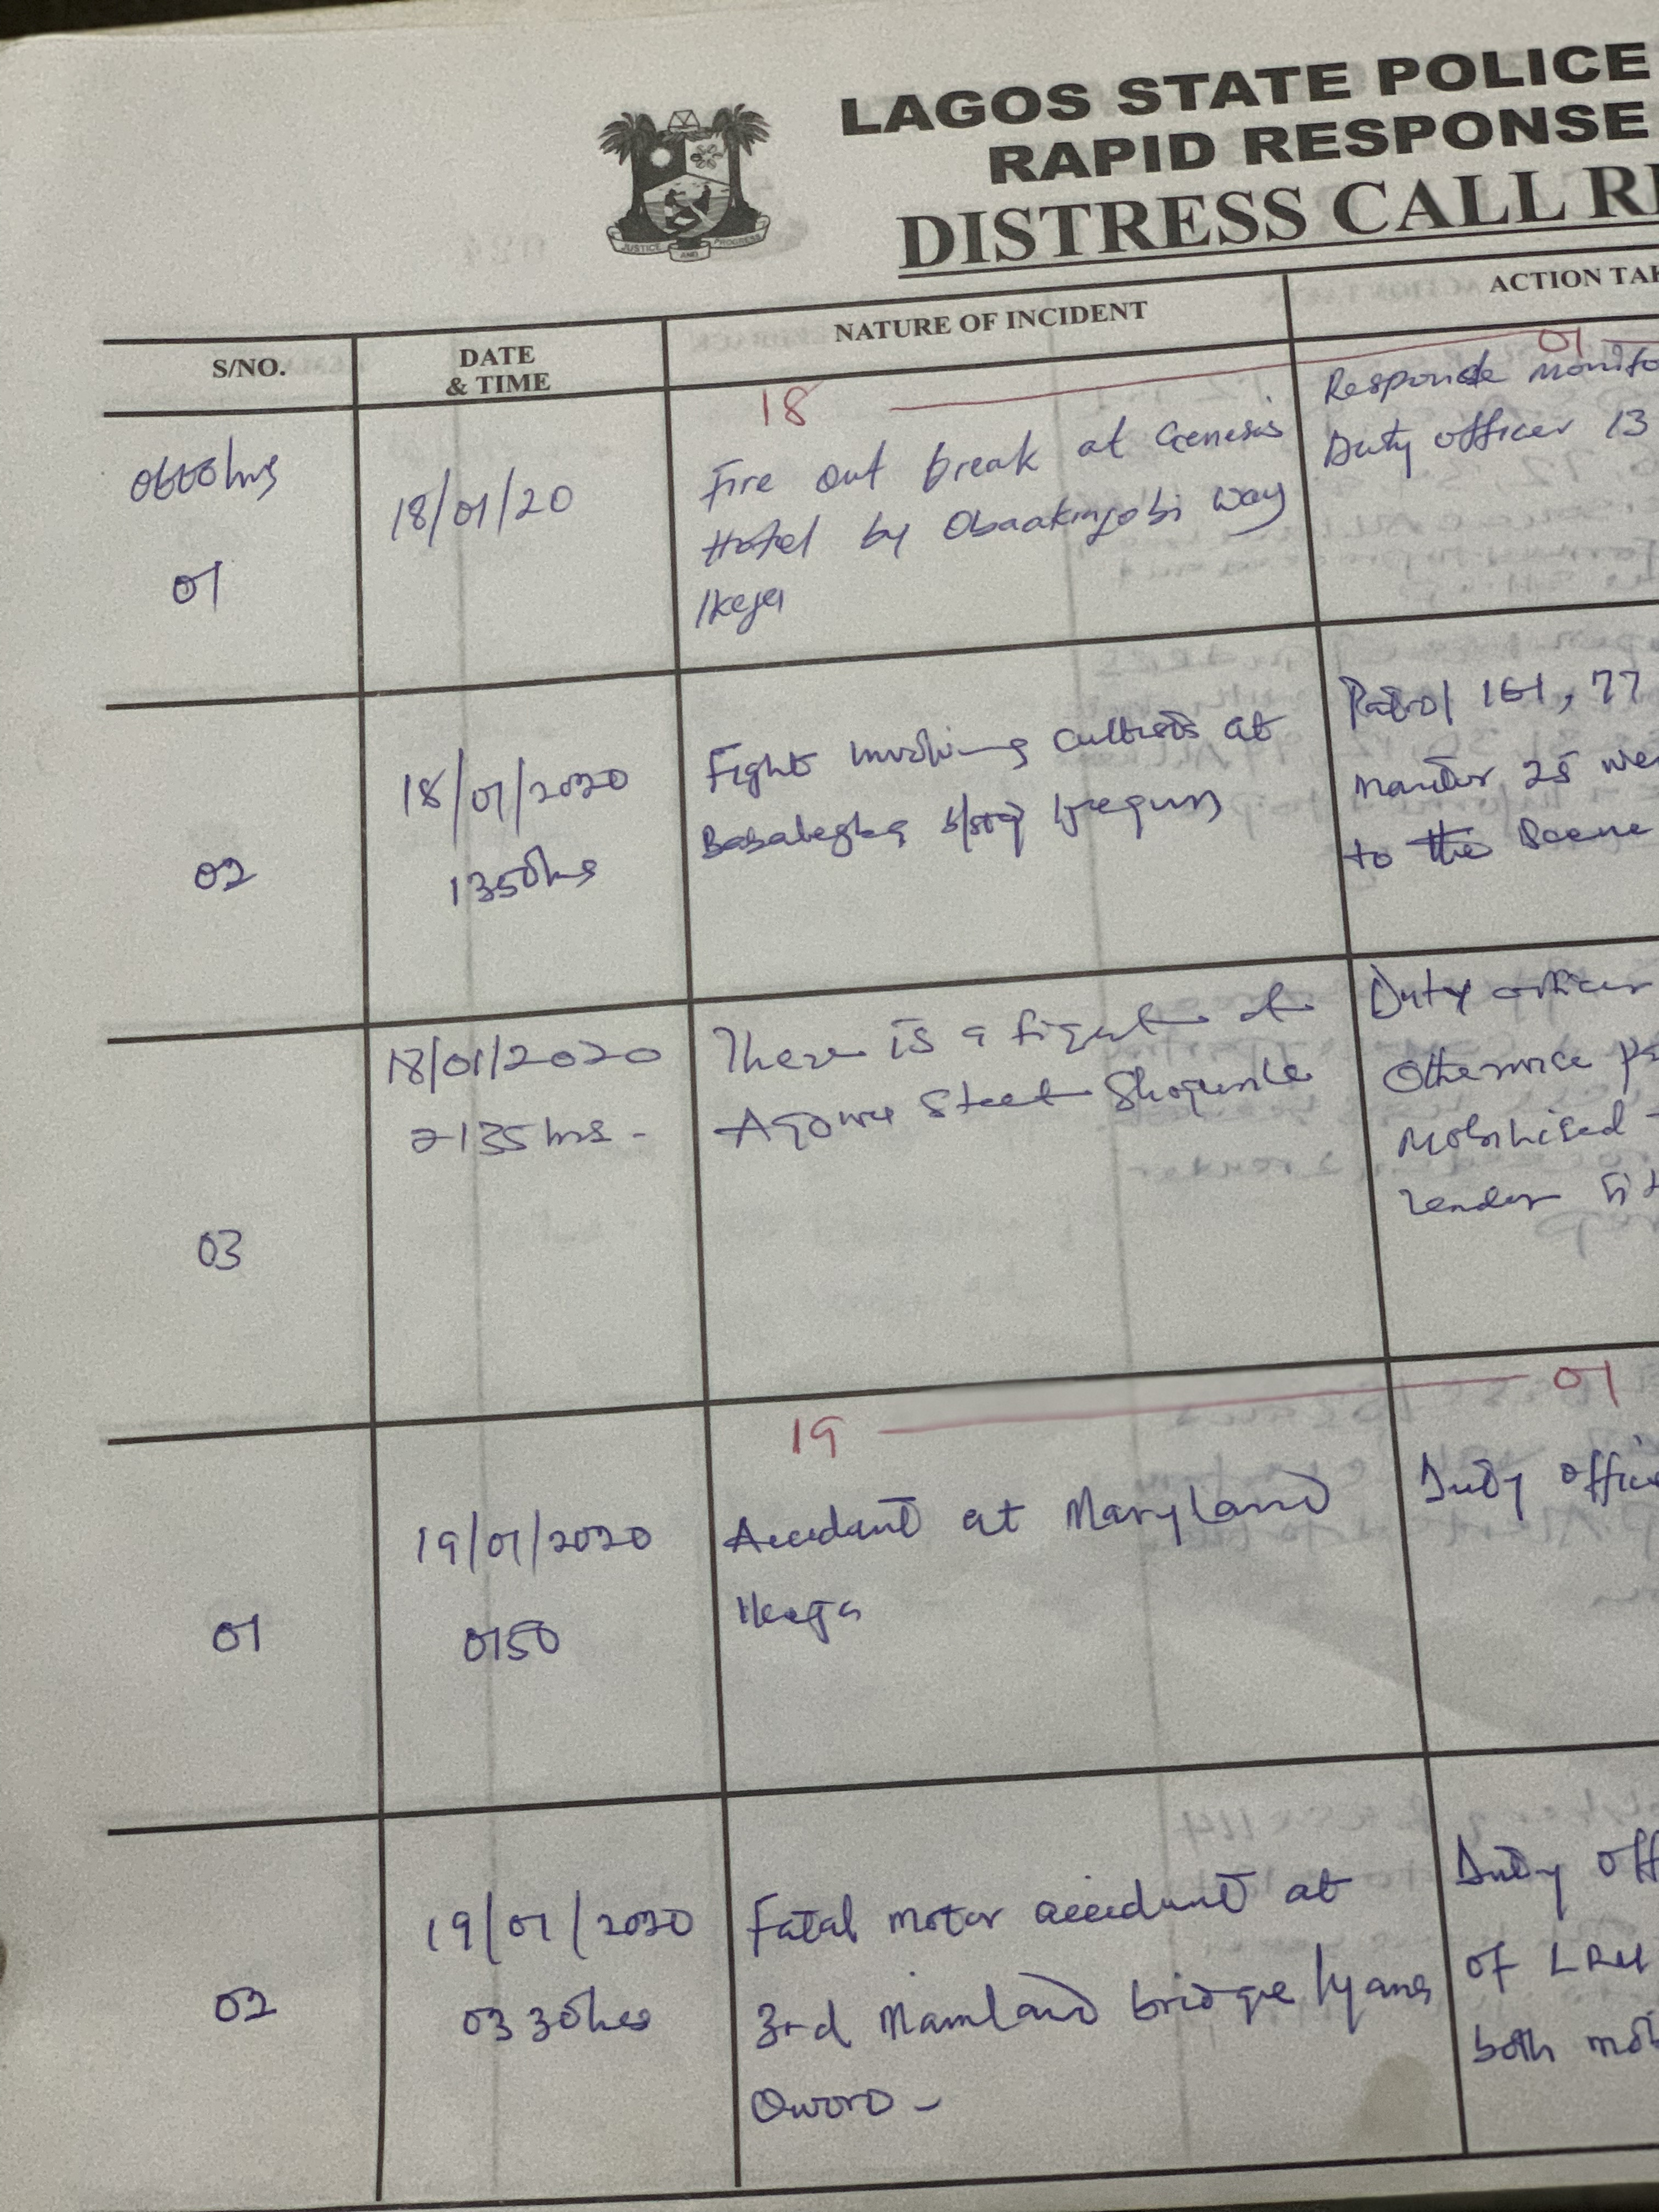 LAGOS STATE POLICE
RAPID RESPONSE
DISTRESS CALL R
JUSTICE AND PROGRESS
S/NO.
DATE & TIME
NATURE OF INCIDENT
ACTION TA
18 01
01
18/01/20
Fire out break at Genesis
Hotel by Obaakinjobi way
Ikeja
Responde Monito
Duty officer 13
02
18/01/2020
1350hrs
Fight involving cultists at
Patrol 161, 77
monitor 25 we
to the scene
03
18/01/2020
2135hrs.
There is a fight at
Street Shogunle
Duty officer
Otherwice
Mobilised
render
19 01
01
19/01/2020
0150
Accident at Maryland
Ikeja
Duty offic
02
19/01/2020
0330hrs
Fatal motor accident at
3rd Mainland bridge Iyana
Oworo -
Duty off
of
both mob